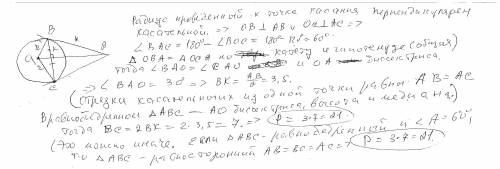 Радиус проведенный к точке касания перпендикулярен
касательной. => OB⊥AB и OC⊥AC =>
∠BAC = 180° - ∠BOC = 180° - 120° = 60°.
△OBA = △OCA по катету и гипотенузе (общая)
Тогда ∠BAO = ∠CAO и OA - биссектриса.
=> ∠BAO = 30° => BK = AB/2 = 3,5.
(Отрезки касательных из одной точки равны. AB = AC
В равнобедренном △ABC - AO биссектриса, высота и медиана.
тогда BC = 2BK = 2·3,5 = 7. => P = 3·7 = 21.
(Это можно иначе. Если △ABC - равнобедренный и ∠A = 60°,
то △ABC - равносторонний AB = BC = AC = 7 P = 3·7 = 21.
B
K
O
C